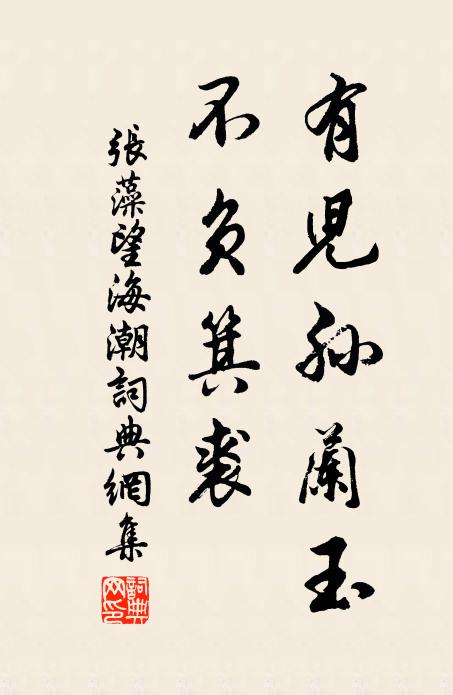 有兒孫蘭玉
不負箕裘
張藻望海潮詞典網集
詞典網印